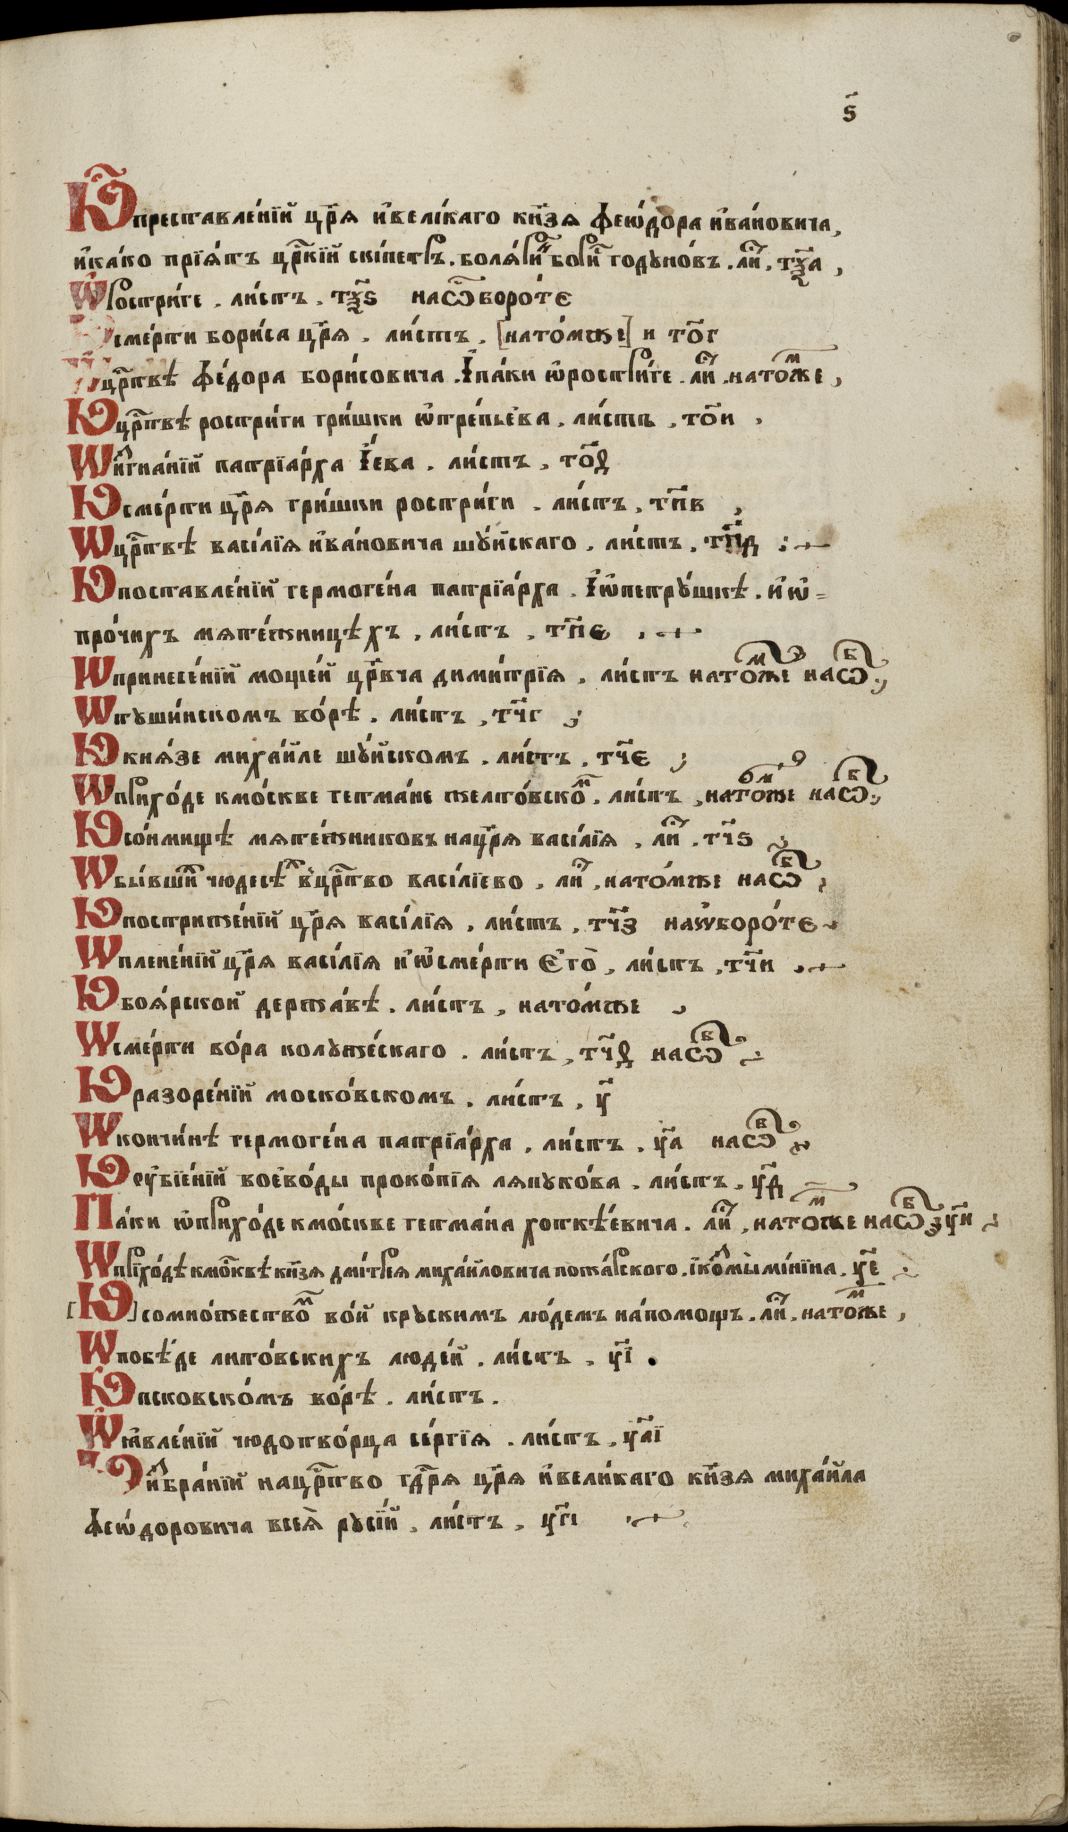 ѕ҃
Ѡ҃преставле́нїи цр҃я и҆вели́каго кн҃зя ѳео́дора и҆ва́новича,
и҆ка́ко прїя́тъ цр҃кїй ски́петръ. боля́ринъ бори́съ годуно́въ. ли́, тѯ҃а,
Ѡ҆ростри́ге. ли́стъ. тѯ҃ѕ наѿборо́те
Ѡсме́рти бори́са цр҃я. ли́стъ. [нато́мже] и то҃г
Ѡцр҃твѣ ѳе́дора бори́совича. І҆па́ки ѡ҆ростри́ге. ли́. нато́мже,
Ѡцр҃твѣ ростри́ги гри́шки ѿре́пьева, ли́стъ, то҃и,
Ѡи҆згна́нїи патрїа́рха І҆е́ва. ли́стъ, то҃ѳ
Ѡсме́рти цр҃я гри́шки ростри́ги. ли́стъ, тп҃в
Ѡцр҃твѣ васи́лїя и҆ва́новича шу́йскаго, ли́стъ, тп҃д
Ѡпоставле́нїи гермоге́на патрїа́рха. І҆ѡ҆петру́шкѣ. и҆ѡ҆=
про́чихъ мяте́жницѣхъ, ли́стъ, тп҃є
Ѡпринесе́нїи моще́й цр҃вча дими́трїя, ли́стъ нато́мже наѿб
Ѡтуши́нскомъ во́рѣ. ли́стъ, тч҃г
Ѡкня́зе миха́йле шу́йскомъ. ли́стъ, тч҃є
Ѡприхо́де кмо́скве гетма́не желто́вском, ли́стъ, нато́мже наѿб
Ѡсо́нмищѣ мяте́жниковъ нацр҃я васи́лїя, ли́. тч҃ѕ
Ѡбы́вших чюдесѣ́х в цр҃тво васи́лїево, ли́, нато́мже наѿб
Ѡпостриже́нїи цр҃я васи́лїя, ли́стъ, тч҃з наѡ҆боро́те
Ѡплене́нїи цр҃я васи́лїя и҆ѡ҆сме́рти є҆го̀, ли́стъ, тч҃и
Ѡбоя́рской держа́вѣ. ли́стъ, нато́мже
Ѡсме́рти во́ра колуже́скаго. ли́стъ, тч҃ѳ наѿб
Ѡразоре́нїи моско́вскомъ, ли́стъ, у҃
Ѡкончи́нѣ гермоге́на патрїа́рха, ли́стъ, у҃а наѿб
Ѡѹбїе́нїи воево́ды проко́пїя ляпуко́ва, ли́стъ, у҃д
Па́ки ѡ҆прихо́де кмо́скве гетма́на хоткѣ́евича. ли́, нато́мже наѿб у҃и
Ѡприхо́дѣ кмо҃квѣ кн҃зя дми́трея миха́йловича пожа́рского. їкозмы̀ ми́нїна. у҃є
[Ѡ]сомно́жеством во́й круским лю́дем напомощъ. ли́. нато́мже,
Ѡпобѣ́де лито́вскихъ люде́й. ли́стъ, у҃ї.
Ѡпсковско́мъ во́рѣ. ли́стъ.
Ѡ҆ꙗ҆вле́нїи чюдотво́рца се́ргїя. ли́стъ, у҃аї
Ѡи҆збра́нїи нацр҃тво гдр҃я цр҃я и҆вели́каго кн҃зя миха́йла
ѳео́доровича всея̀ русі́и, ли́стъ, у҃гі